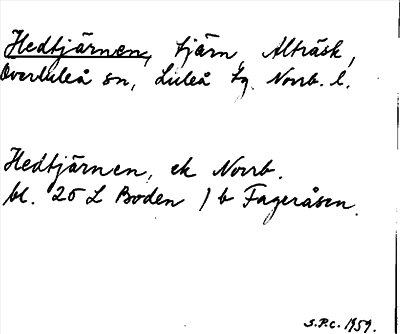 Hedtjärnen, tjärn, Alträsk,
Överluleå sn, Luleå tg. Norrb. l.
Hedtjärnen, ek Norrb.
bl. 25 L Boden 1 b Fageråsen.
S.P.c. 1959.